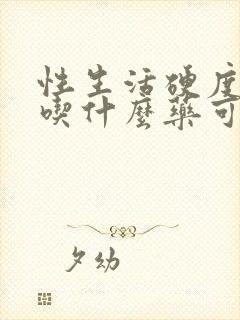 性生活硬度
喫什麼藥可
夕幼